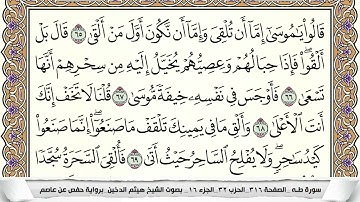 قَالُوا۟ يَـٰمُوسَىٰٓ إِمَّآ أَن تُلْقِىَ وَإِمَّآ أَن نَّكُونَ أَوَّلَ مَنْ أَلْقَىٰ ٦٥ قَالَ بَلْ
أَلْقُوا۟ ۖ فَإِذَا حِبَالُهُمْ وَعِصِيُّهُمْ يُخَيَّلُ إِلَيْهِ مِن سِحْرِهِمْ أَنَّهَا
تَسْعَىٰ ٦٦ فَأَوْجَسَ فِى نَفْسِهِۦ خِيفَةً مُّوسَىٰ ٦٧ قُلْنَا لَا تَخَفْ إِنَّكَ
أَنتَ ٱلْأَعْلَىٰ ٦٨ وَأَلْقِ مَا فِى يَمِينِكَ تَلْقَفْ مَا صَنَعُوٓا۟ ۖ إِنَّمَا صَنَعُوا۟
كَيْدُ سَـٰحِرٍ ۖ وَلَا يُفْلِحُ ٱلسَّاحِرُ حَيْثُ أَتَىٰ ٦٩ فَأُلْقِىَ ٱلسَّحَرَةُ سُجَّدًا
سورة طه_ الصفحة ٣١٦_ الحزب ٣٢_ الجزء ١٦_ بصوت الشيخ هيثم الدخين برواية حفص عن عاصم